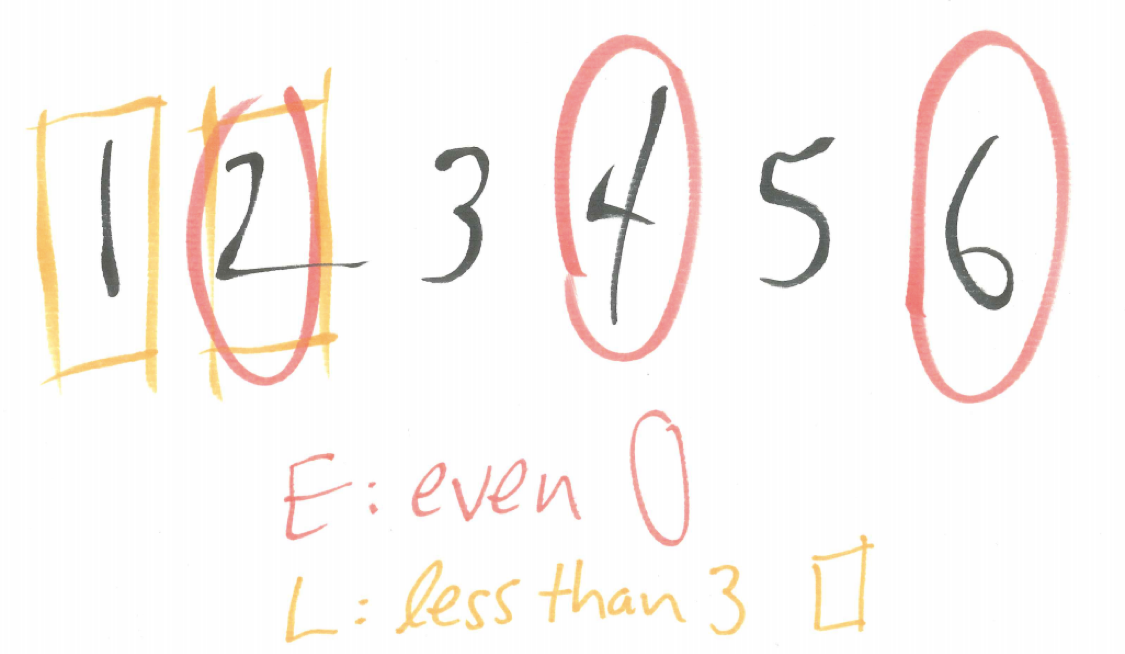 1 2 3 4 5 6
E: even
L: less than 3